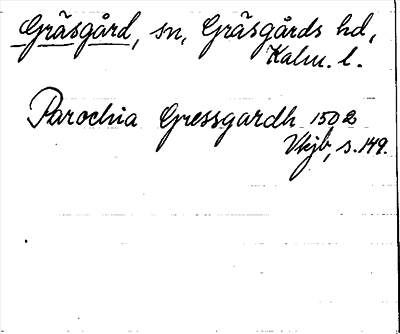 Gräsgård, sn, Gräsgårds hd,
Kalm. l.
Parochia Gressgardh 1502
Vkjb, s. 149.